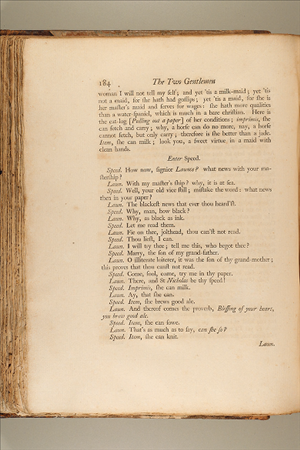 184 The Two Gentlemen
woman I will not tell my self; and yet 'tis a milk-maid; yet 'tis
not a maid, for she hath had gossips; yet 'tis a maid, for she is
her master's maid and serves for wages: she hath more qualities
than a water-spaniel, which is much in a bare christian. Here is
the cat-log [Pulling out a paper] of her conditions; imprimis, she
can fetch and carry; why, a horse can do no more, nay, a horse
cannot fetch, but only carry; therefore is she better than a jade.
Item, she can milk; look you, a sweet virtue in a maid with
clean hands.
Enter Speed.
Speed. How now, signior Launce? what news with your ma-
stership?
Laun. With my master's ship? why, it is at sea.
Speed. Well, your old vice still; mistake the word: what news
then in your paper?
Laun. The blackest news that ever thou heard'st.
Speed. Why, man, how black?
Laun. Why, as black as ink.
Speed. Let me read them.
Laun. Fie on thee, jolthead, thou can'st not read.
Speed. Thou liest, I can.
Laun. I will try thee; tell me this, who begot thee?
Speed. Marry, the son of my grand-father.
Laun. O illiterate loiterer, it was the son of thy grand-mother;
this proves that thou canst not read.
Speed. Come, fool, come, try me in thy paper.
Laun. There, and St Nicholas be thy speed!
Speed. Imprimis, she can milk.
Laun. Ay, that she can.
Speed. Item, she brews good ale.
Laun. And thereof comes the proverb, Blessing of your heart,
you brew good ale.
Speed. Item, she can sowe.
Laun. That's as much as to say, can she so?
Speed. Item, she can knit.
Laun.